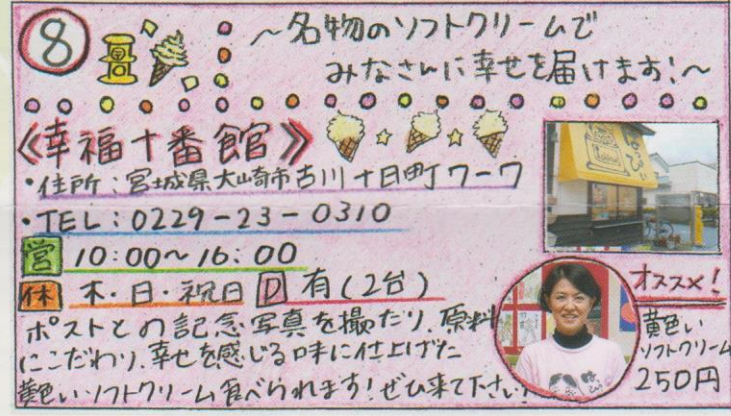 ⑧
～名物のソフトクリームで
みなさんに幸せを届けます!～
《幸福十番館》
・住所:宮城県大崎市古川十日町7-7
・TEL:0229-23-0310
営 10:00～16:00
休 木・日・祝日 P 有(2台)
ポストとの記念写真を撮たり、原料
にこだわり、幸せを感じる味に仕上げた
黄色いソフトクリーム食べられます!ぜひ来て下さい!
オススメ!
黄色い
ソフトクリーム
250円